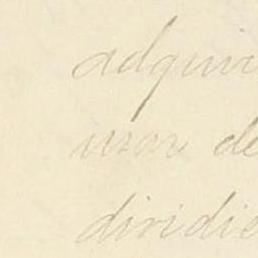 adquiri
usar de
dividie